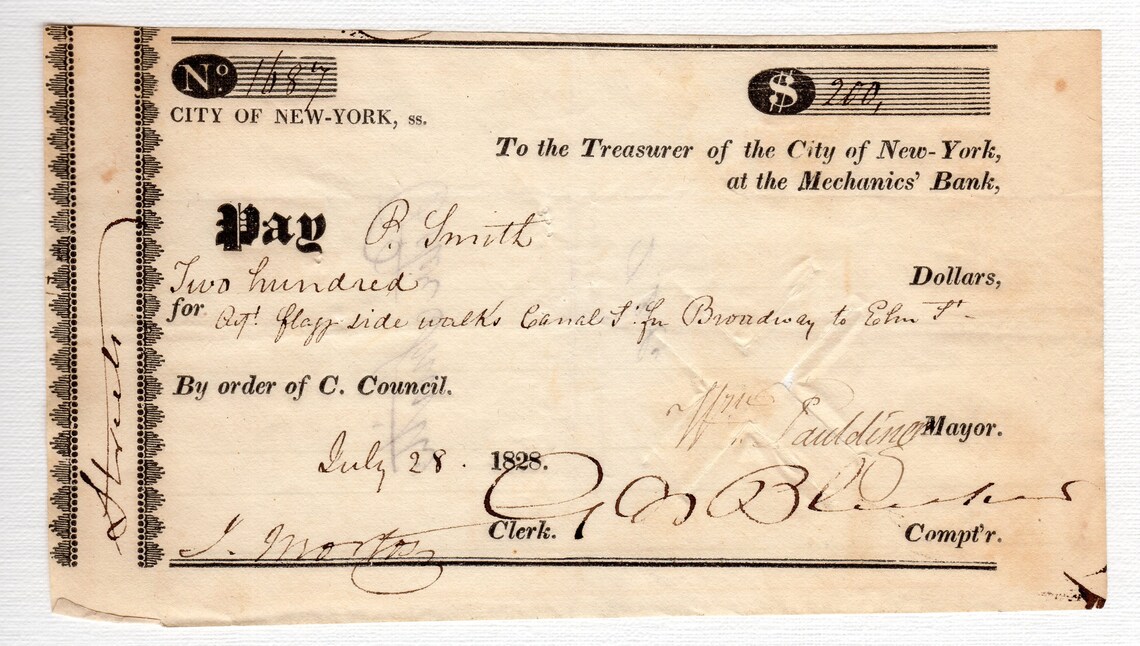 No. 1687
$ 200,
CITY OF NEW-YORK, ss.
To the Treasurer of the City of New-York,
at the Mechanics' Bank,
Pay P. Smith
Two hundred Dollars,
for flagg side walks Canal St. fm Broadway to Elm St
By order of C. Council.
Wm. Paulding Mayor.
July 28. 1828.
J. Morton Clerk. Compt'r.
Streets